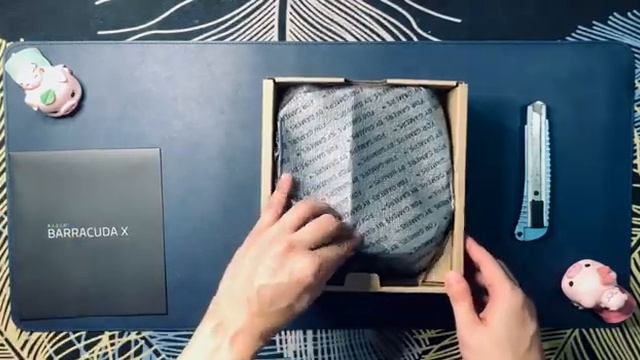 RAZER
BARRACUDA X
FOR GAMERS. BY GAMERS.